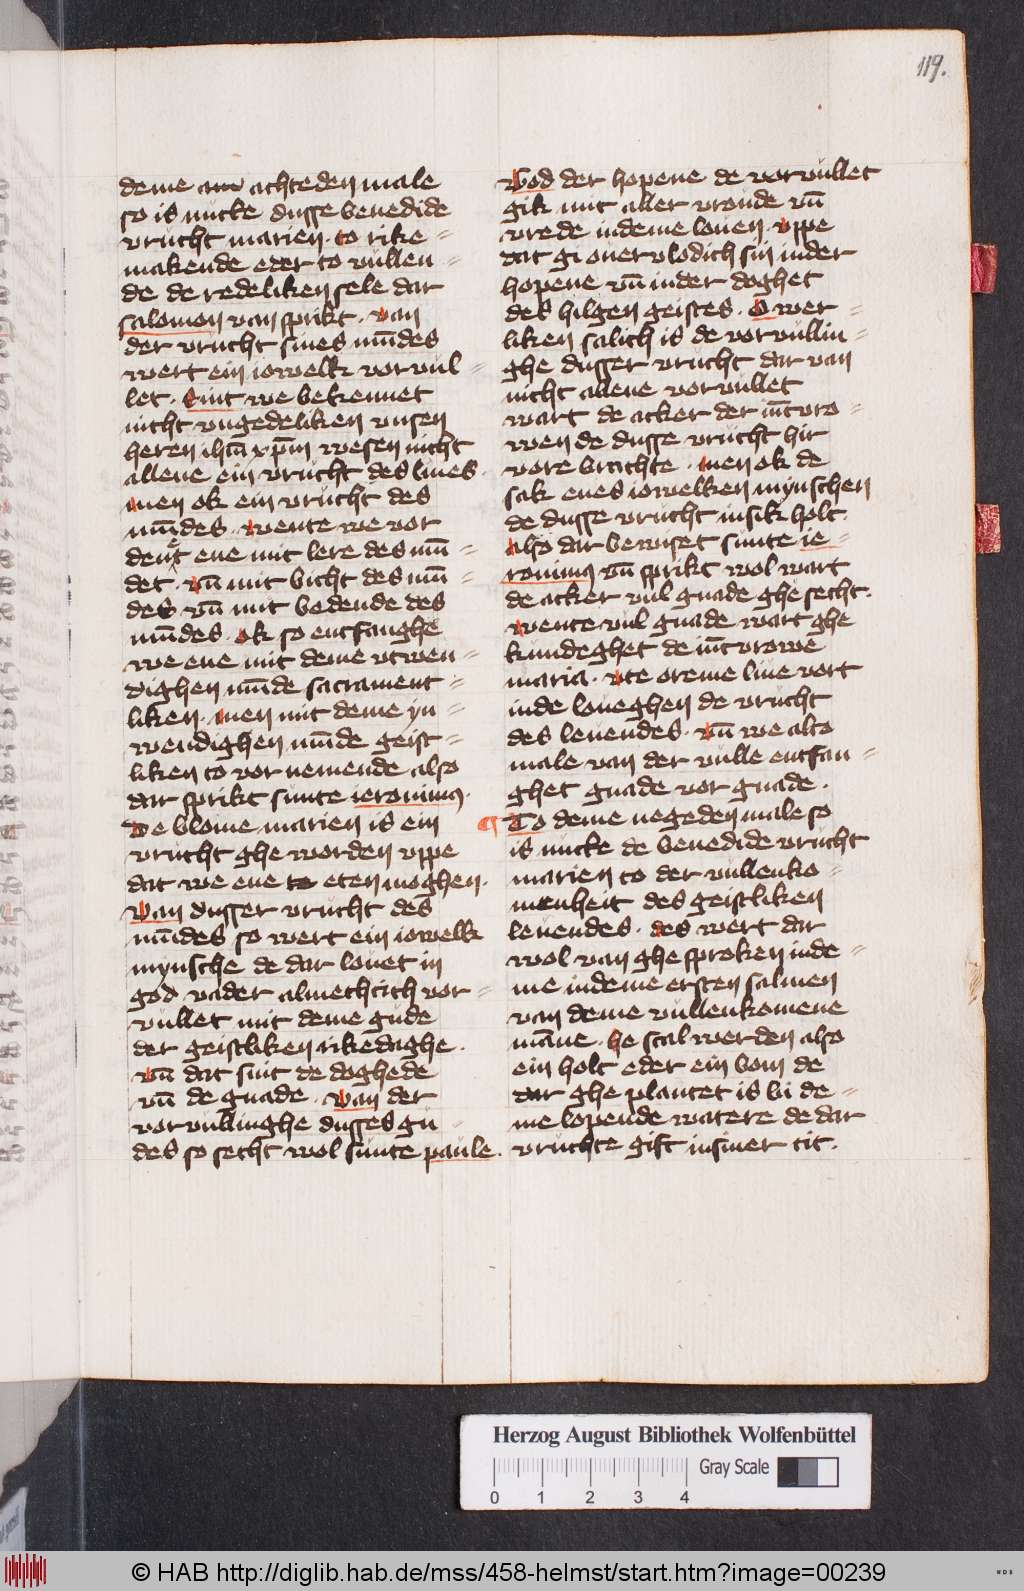 119.
deme achteden male
so is nucke dusse benedide
vrucht marien. to rike=
makende eder to vullen=
de de redeliken sele dar
salomon van sprikt. van
der vrucht sines mūdes
wert ein iowelk vorvul=
let. Sint we bekennet
nicht vngedeliken vnsen
heren ihm̄ xp̄m wesen nicht
allene ein vrucht des liues.
men ok ein vrucht des
mūdes. wente we vor
ene mit lere des mū=
det. vn̄ mit bicht des mū=
des vn̄ mit bedende des
mūdes. ok so entfanghe
we ene mit deme vtwen=
dighen mūde sacrament=
liken. men mit deme yn=
wendighen mūde geist=
liken to vornemende also
dar sprikt sunte ieronimus.
De blome marien is ein
vrucht ghe worden vppe
dat we ene eten moghen.
Van dusser vrucht des
mūdes so wert ein iowelk
mynsche de dar louet in
god vader almechtich vor=
vullet mit deme gude
der geistliken rikedaghe.
vn̄ dat sint de doghede
vn̄ de gnade. van der
vorvullinghe dusses gu=
des so secht wol sunte paule.
God der hopene de vorvullet
gik mit aller vronde vn̄
vrede in deme louen. vppe
dat gi ouervlodich sin inder
hopene vn̄ inder doghet
des hilgen geistes. Ower=
liken salich is de vorvullin=
ghe dusser vrucht dar van
nicht allene vorvullet
wart de acker der iūcvro=
wen de dusse vrucht hir
vore brachte. men ok de
sak enes iowelken mynschen
de dusse vrucht in sik holt.
also dar bewiset sunte ie=
ronimus vn̄ sprikt wol wart
de acker vul gnade ghe secht.
wente vul gnade wart ghe
kundeghet de iūcvrowe
maria. vte oreme liue vort
inde loueghen de vrucht
des leuendes. vn̄ we alto
male van der vulle entfan=
ghet gnade vor gnade.
¶ To deme negeden male so
is nucke de benedide vrucht
marien to der vullenko=
menheit des geistliken
leuendes. des wert dar
wol van ghe sproken inde=
me indeme ersten salmen
van deme vullenkomene
māne. he scal werden also
ein holt eder ein bom de
dar ghe plantet is bi de=
me lopende watere de dar
vruchte gift in siner tit.
Herzog August Bibliothek Wolfenbüttel
Gray Scale
0 1 2 3 4
© HAB http://diglib.hab.de/mss/458-helmst/start.htm?image=00239